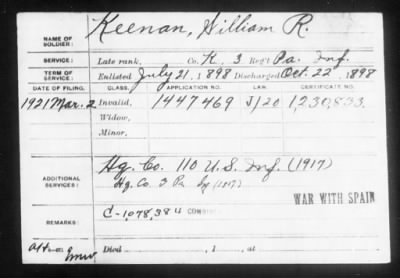 NAME OF SOLDIER: Keenan, William R.
SERVICE: Late rank, Co. K, 3 Reg't Pa. Inf.
TERM OF SERVICE: Enlisted July 21, 1898 Discharged Oct. 22, 1898
DATE OF FILING. CLASS. APPLICATION NO. LAW. CERTIFICATE NO.
1921 Mar. 2 Invalid, 1447469 J/20 1,230,833.
Widow,
Minor,
ADDITIONAL SERVICES: Hq. Co. 110 U.S. Inf. (1917)
Hq. Co. 3 Pa Inf (1917)
WAR WITH SPAIN
REMARKS: C-1,078,384
Died , 1 , at